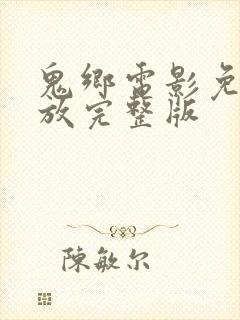 鬼鄉電影免
放完整版
陳敏尔